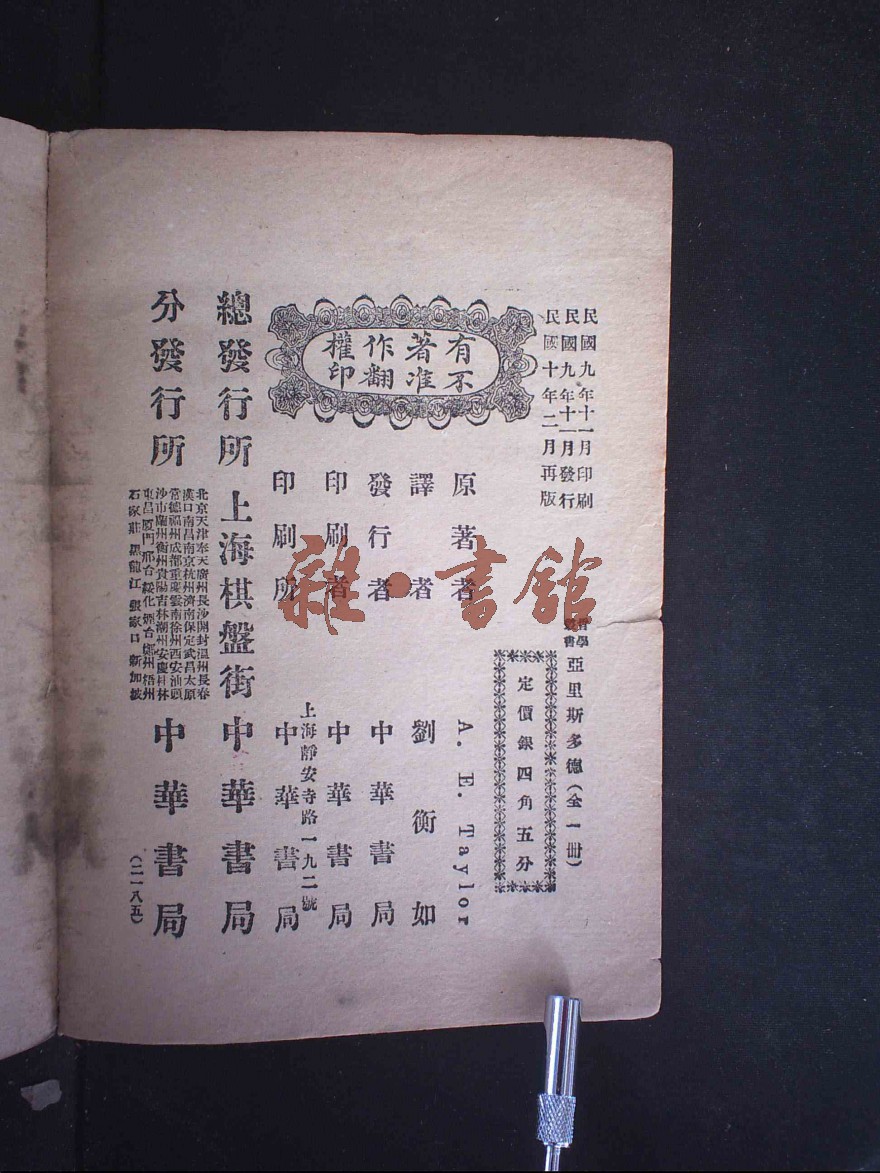 民國九年十一月印刷
民國九年十一月發行
民國十年二月再版
哲學
叢書
亞里斯多德(全一冊)
定價銀四角五分
有著作權
不准翻印
原著者 A. E. Taylor
譯者 劉衡如
發行者 中華書局
印刷者 中華書局
上海靜安寺路一九二號
印刷所 中華書局
總發行所 上海棋盤街 中華書局
分發行所
北京天津奉天廣州長沙開封溫州長春
漢口南昌南京杭州濟南保定武昌太原
常德福州成都重慶雲南徐州西安汕頭
沙市蘭州衡州貴陽吉林潮州安慶桂林
東昌廈門邢台綏化煙台鄭州梧州
石家莊 黑龍江 張家口 新加坡
中華書局
(二一八五)
雜·書館